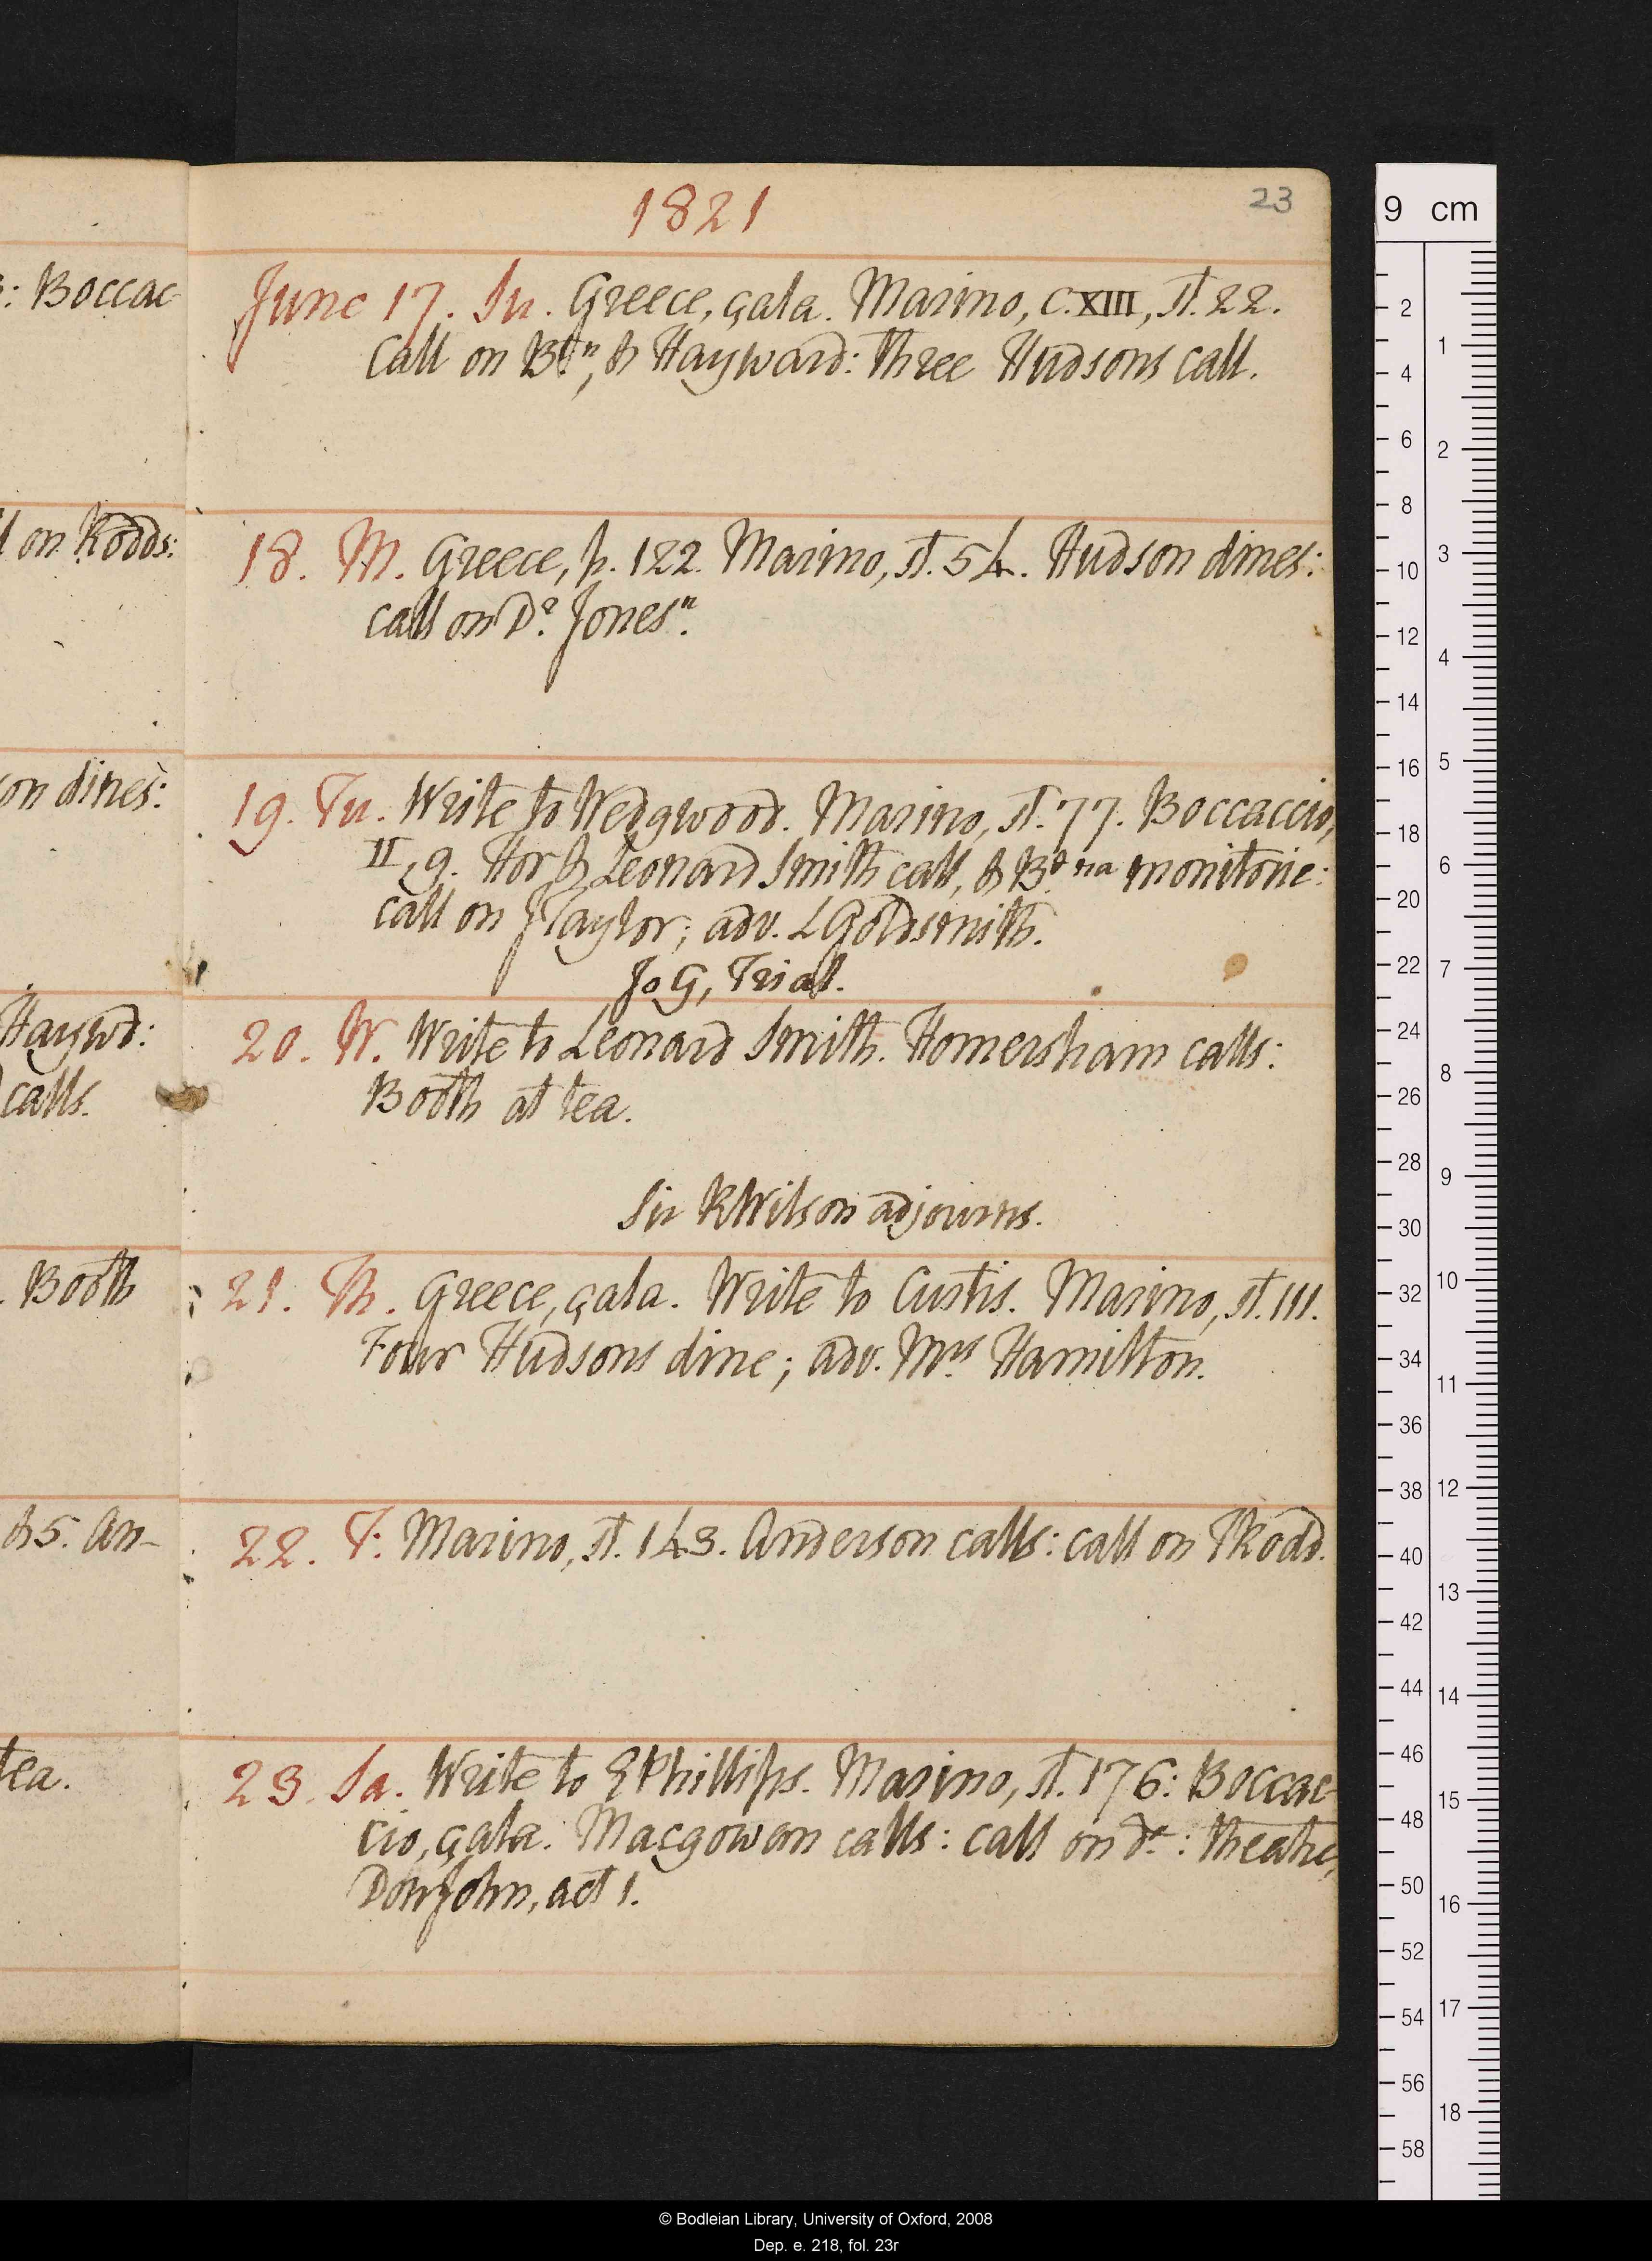 : Boccac-
on Rodds:
on dines:
Haywd:
calls.
. Booth
& 5. An-
tea.
1821
23
June 17. Su. Greece, çala. Marino, c. XIII, st. 22.
Call on Btn, & Hayward: three Hudsons call.
18. M. Greece, p. 122. Marino, st. 54. Hudson dines:
call on Dr. Jonesn.
19. Tu. Write to Wedgwood. Marino, st. 77. Boccaccio,
II, 9. Hor & Leonard Smith call, & Bt na monitorie:
call on J Taylor; adv. L Goldsmith.
Jo G, Trial.
20. W. Write to Leonard Smith. Homersham calls:
Booth at tea.
Sir R Wilson adjourns.
21. Th. Greece, çala. Write to Custis. Marino, st. 111.
Four Hudsons dine; adv. Mrs Hamilton.
22. F: Marino, st. 143. Anderson calls: call on T Rodd.
23. Sa. Write to E Phillips. Marino, st. 176: Boccac-
cio, çala. Macgowan calls: call on do: theatre,
Don John, act 1.
9 cm
2
4
6
8
10
12
14
16
18
20
22
24
26
28
30
32
34
36
38
40
42
44
46
48
50
52
54
56
58
1
2
3
4
5
6
7
8
9
10
11
12
13
14
15
16
17
18
© Bodleian Library, University of Oxford, 2008
Dep. e. 218, fol. 23r